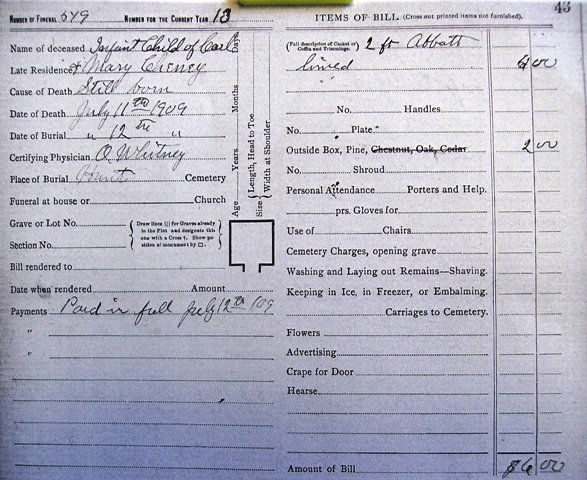 NUMBER OF FUNERAL 549 NUMBER FOR THE CURRENT YEAR 13
Name of deceased Infant Child of Carl
Late Residence & Mary Cheney
Cause of Death Still born
Date of Death July 11th 1909
Date of Burial " 12th "
Certifying Physician O Whitney
Place of Burial Cemetery
Funeral at house or Church
Grave or Lot No.
Section No.
Draw lines for Graves already in the Plot and designate this one with a Cross †. Show position of monument by □.
Bill rendered to
Date when rendered Amount
Payments Paid in full July 12th 109
"
"
Age Years Months Days
Size { Length, Head to Toe
Width at Shoulder
43
ITEMS OF BILL (Cross out printed items not furnished).
(Full description of Casket or Coffin and Trimmings. 2 ft Abbott
lined 4 00
No. Handles
No. Plate
Outside Box, Pine, Chestnut, Oak, Cedar 2 00
No. Shroud
Personal Attendance Porters and Help.
prs. Gloves for
Use of Chairs
Cemetery Charges, opening grave
Washing and Laying out Remains—Shaving.
Keeping in Ice, in Freezer, or Embalming.
Carriages to Cemetery.
Flowers
Advertising
Crape for Door
Hearse
Amount of Bill $6 00